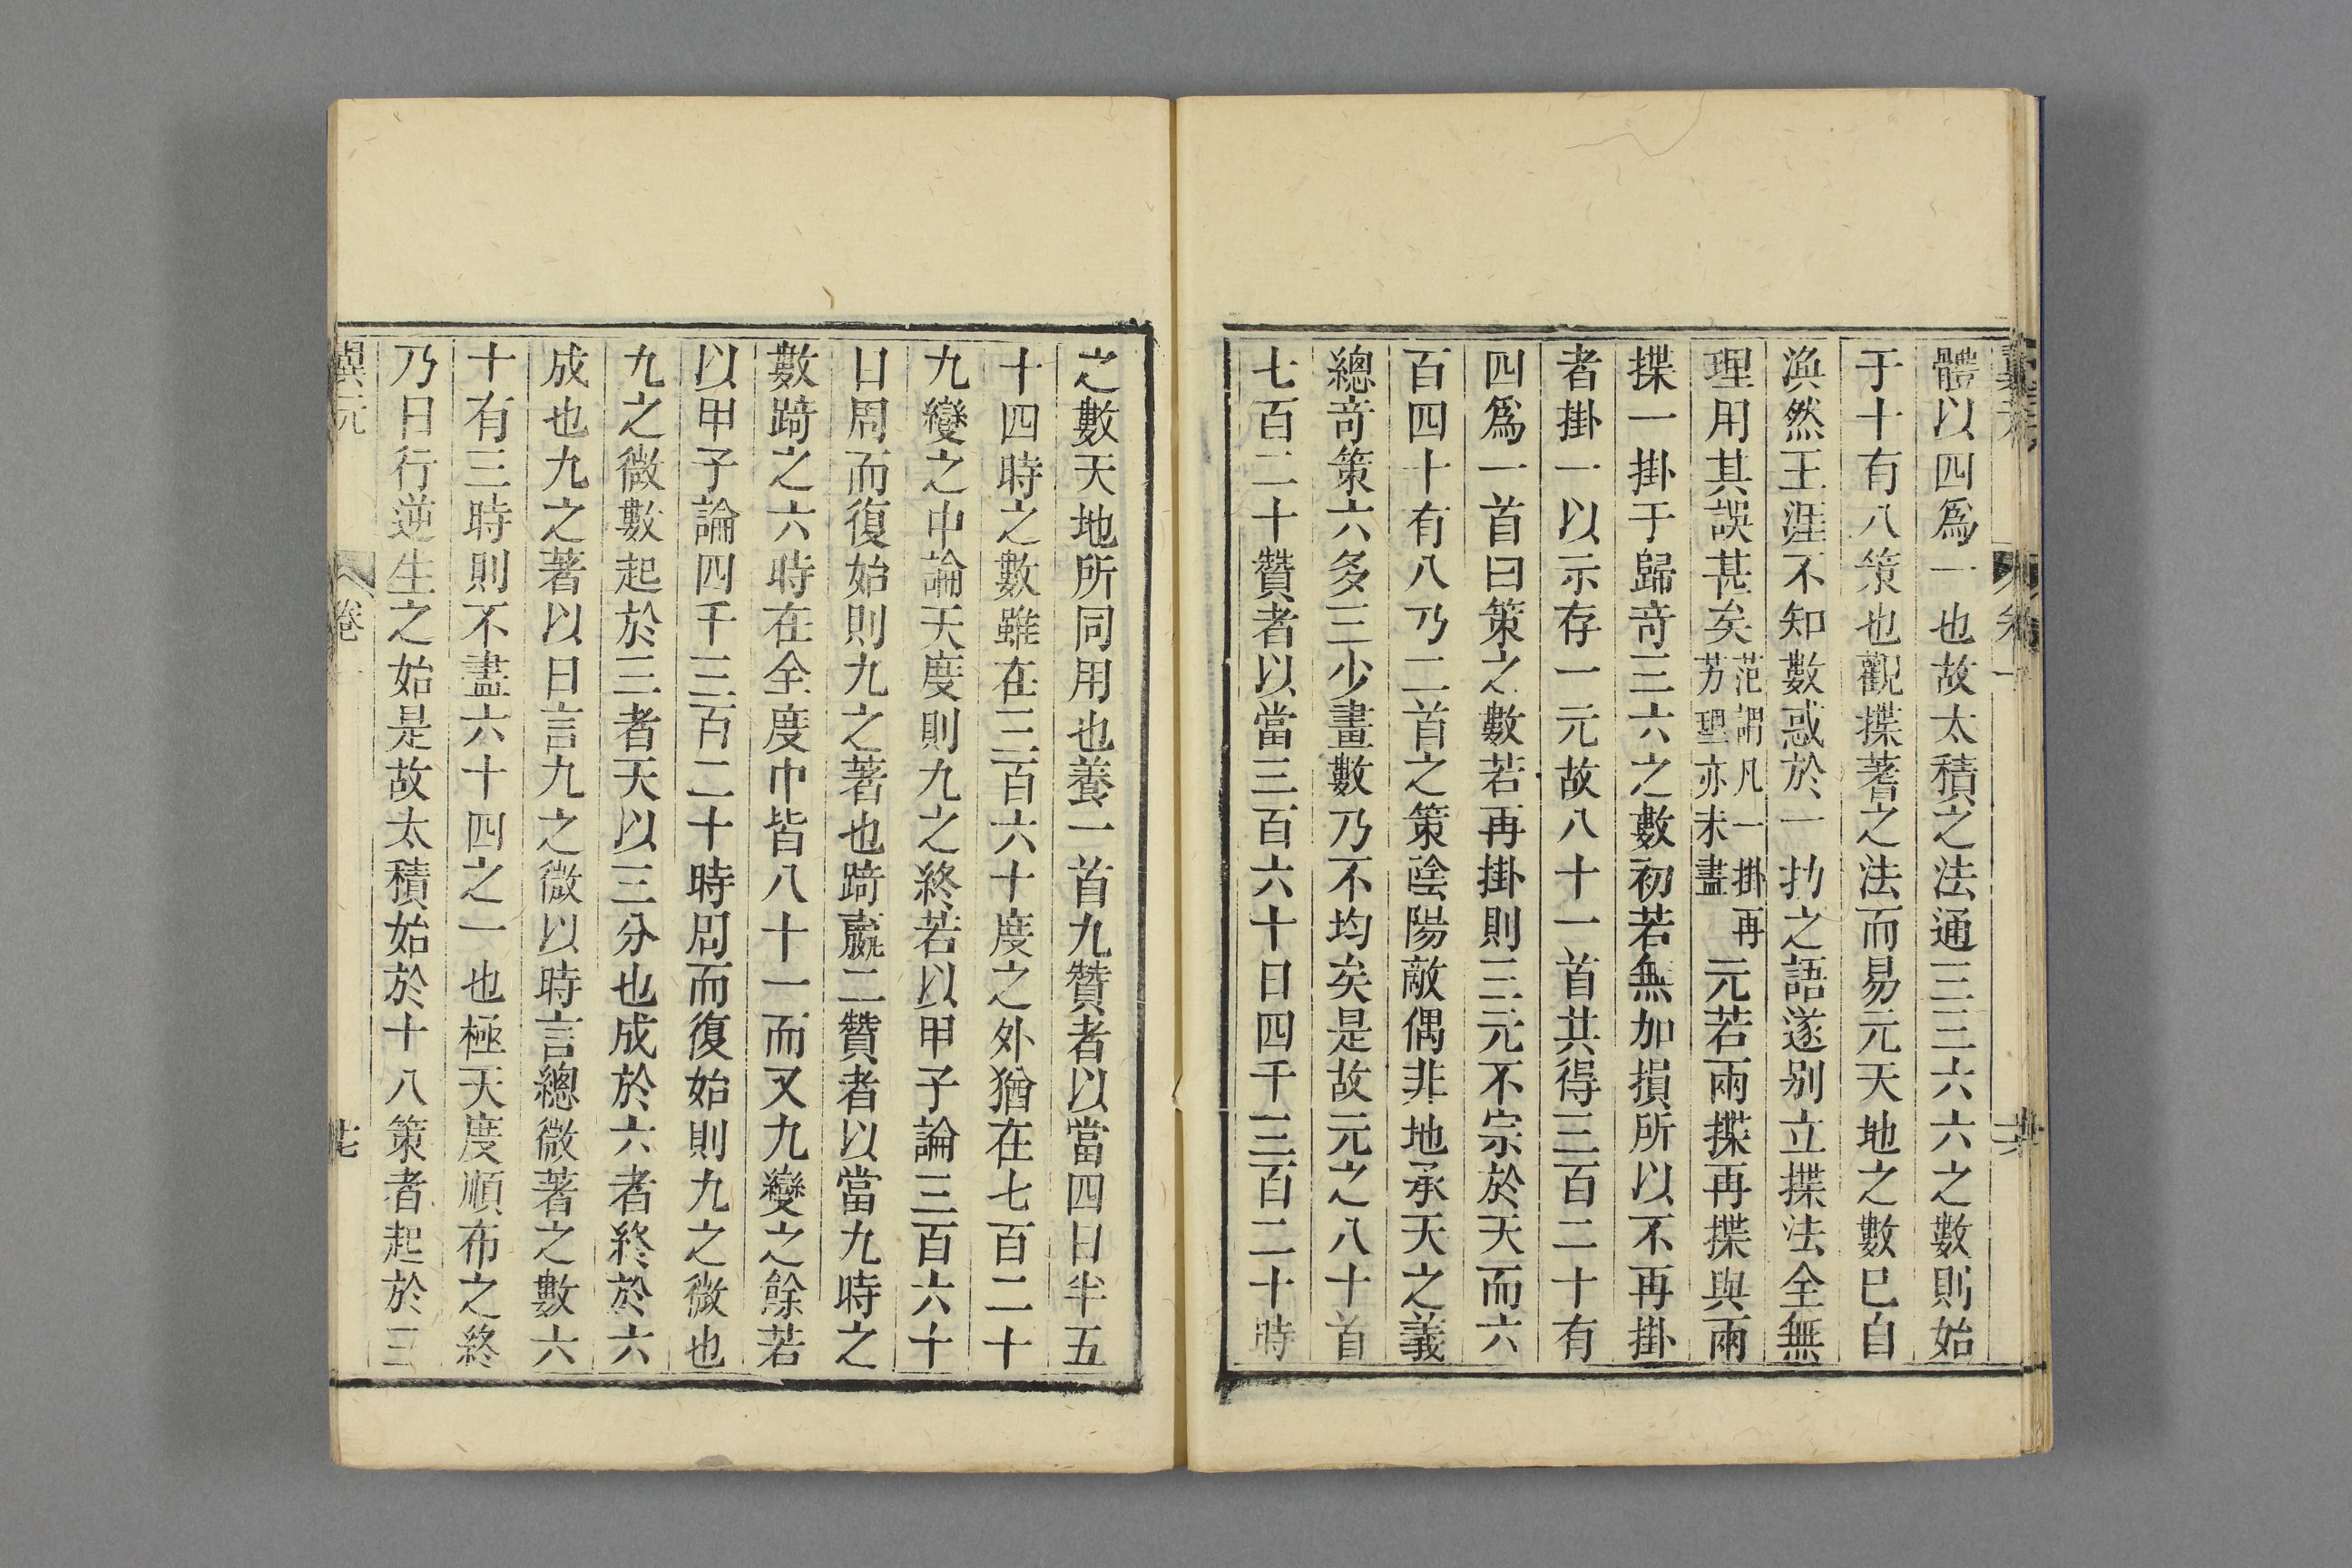 體以四爲一也故太積之法通三三六六之數則始
于十有八策也觀揲蓍之法而易元天地之數已自
渙然王涯不知數惑於一扐之語遂别立揲法全無
理用其誤甚矣范謂凡一掛再芴理亦未盡元若兩揲再揲與兩
揲一掛于歸奇三六之數初若無加損所以不再掛
者掛一以示存一元故八十一首共得三百二十有
四爲一首曰策之數若再掛則三元不宗於天而六
百四十有八乃二首之策陰陽敵偶非地承天之義
總奇策六多三少畫數乃不均矣是故元之八十首
七百二十贊者以當三百六十日四千三百二十時
之數天地所同用也養一首九贊者以當四日半五
十四時之數雖在三百六十度之外猶在七百二十
九變之中論天度則九之終若以甲子論三百六十
日周而復始則九之著也踦嬴二贊者以當九時之
數踦之六時在全度巾皆八十一而又九變之餘若
以甲子論四千三百二十時周而復始則九之微也
九之微數起於三者天以三分也成於六者終於六
成也九之著以日言九之微以時言總微著之數六
十有三時則不盡六十四之一也極天度順布之終
乃日行逆生之始是故太積始於十八策者起於三
翼元
卷一
廿七